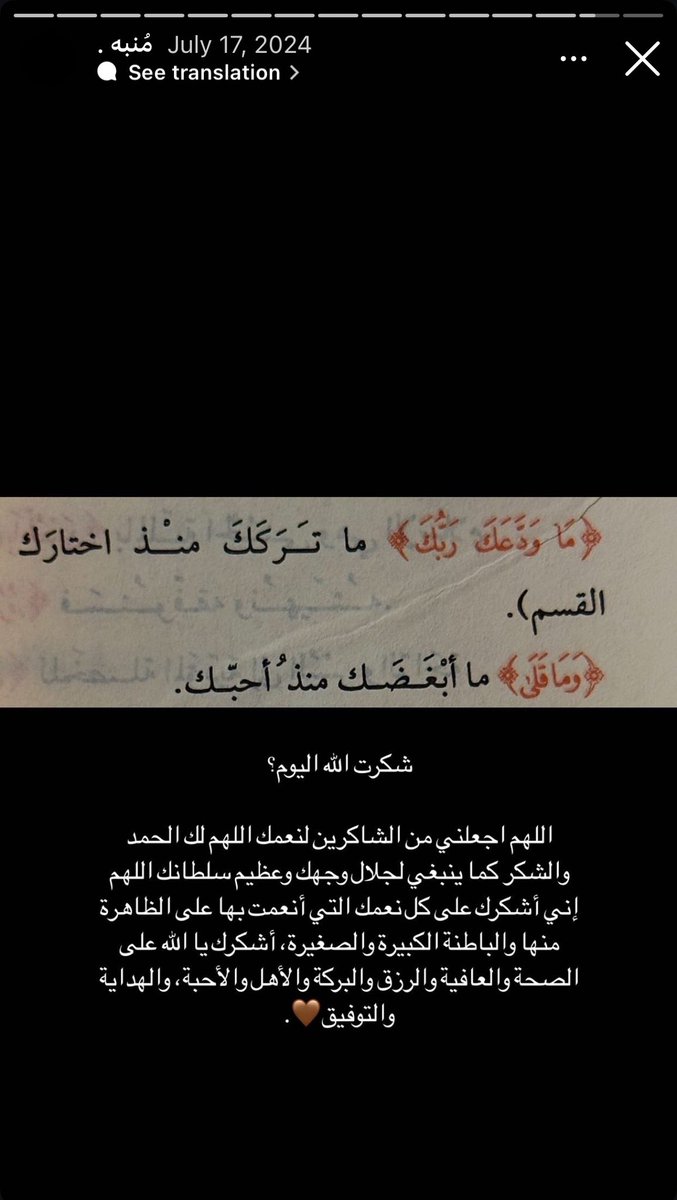 مُنبه . July 17, 2024
See translation
﴿مَا وَدَّعَكَ رَبُّكَ﴾ ما تَـرَكَكَ منْـذ اختارَك
القسم).
﴿وَمَا قَلَىٰ﴾ ما أبْغَـضَـك منذُ أحبّـك.
شكرت الله اليوم؟
اللهم اجعلني من الشاكرين لنعمك اللهم لك الحمد
والشكر كما ينبغي لجلال وجهك وعظيم سلطانك اللهم
إني أشكرك على كل نعمك التي أنعمت بها على الظاهرة
منها والباطنة الكبيرة والصغيرة، أشكرك يا الله على
الصحة والعافية والرزق والبركة والأهل والأحبة، والهداية
والتوفيق🤎.